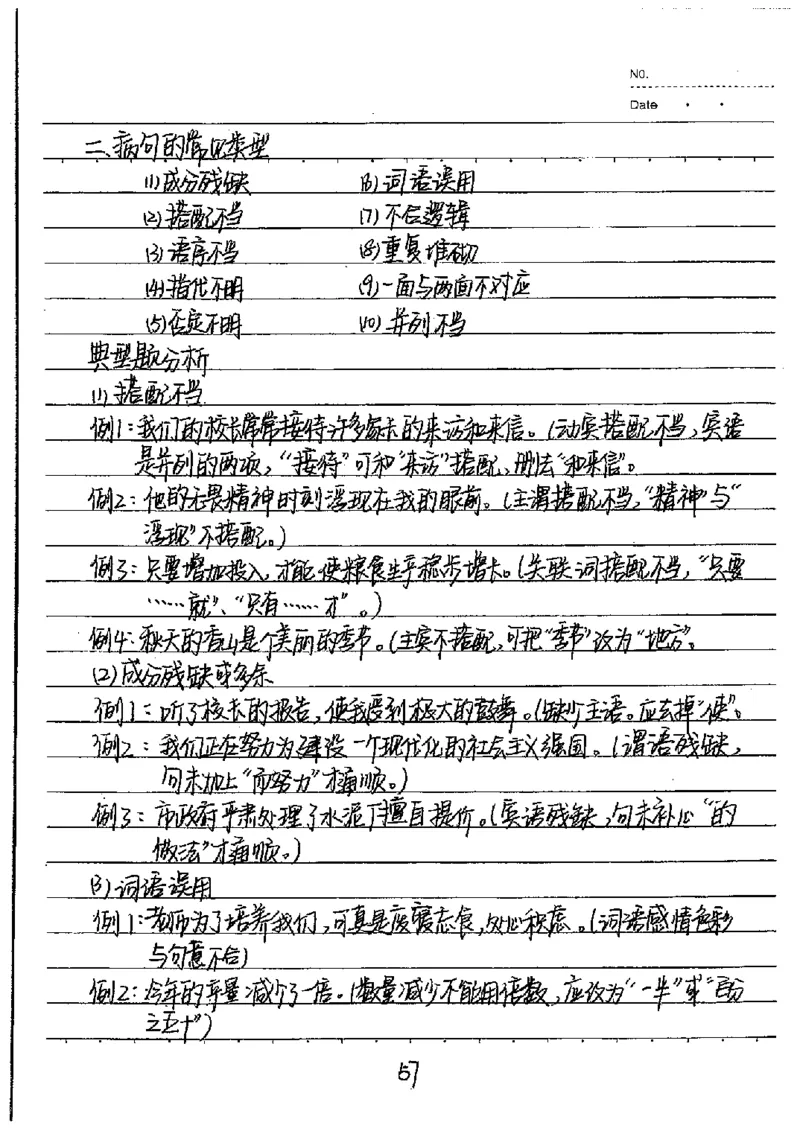 No.
Date
二、病句的常见类型
(1)成分残缺 (6)词语误用
(2)搭配不当 (7)不合逻辑
(3)语序不当 (8)重复堆砌
(4)指代不明 (9)一面与两面不对应
(5)否定不明 (10)并列不当
典型题分析
(1)搭配不当
例1:我们的校长常常接待许多家长的来访和来信。(动宾搭配不当,宾语
是并列的两项,“接待”可和“来访”搭配,删去“和来信”。
例2:他的无畏精神时刻浮现在我的眼前。(主谓搭配不当,“精神”与“
浮现”不搭配。)
例3:只要增加投入,才能使粮食生产稳步增长。(关联词搭配不当,“只要
……就”、“只有……才”。)
例4:秋天的香山是个美丽的季节。(主宾不搭配,可把“季节”改为“地方”。
(2)成分残缺或多余
例1:听了校长的报告,使我受到极大的鼓舞。(缺少主语。应去掉“使”。
例2:我们正在努力为建设一个现代化的社会主义强国。(谓语残缺,
句末加上“而努力”才通顺。)
例3:市政府严肃处理了水泥厂擅自提价。(宾语残缺,句末补上“的
做法”才通顺。)
(3)词语误用
例1:老师为了培养我们,可真是废寝忘食,处心积虑。(词语感情色彩
与句意不合)
例2:今年的产量减少了一倍。(数量减少不能用倍数,应改为“一半”或“百分
之五十”)
67